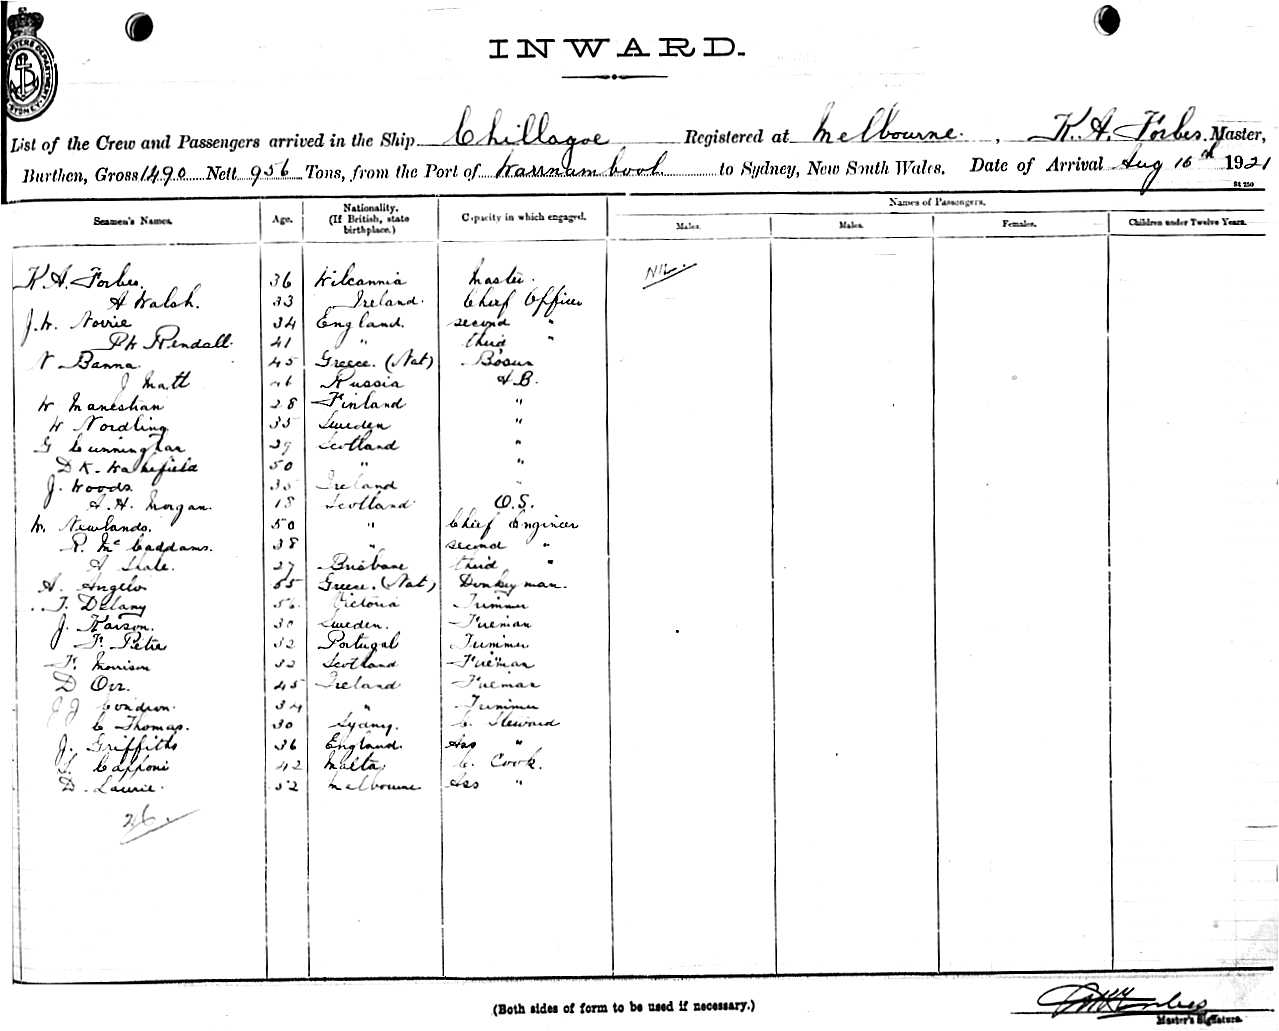 INWARD.
List of the Crew and Passengers arrived in the Ship Chillagoe Registered at Melbourne. , K. A. Forbes. Master,
Burthen, Gross 1490 Nett 956 Tons, from the Port of Warrnambool to Sydney, New South Wales, Date of Arrival Aug 16th 1921
St 250
Seamen's Names. Age. Nationality. (If British, state birthplace.) Capacity in which engaged. Names of Passengers.
Males. Males. Females. Children under Twelve Years.
K. A. Forbes. 36 Wilcannia Master. NIL.
A Walsh. 33 Ireland. Chief Officer
J. W. Norrie 34 England. second "
Ph Rendall. 41 " third "
V Banna. 45 Greece. (Nat) Bosun
J Matt 46 Russia A B.
W Manestian 28 Finland "
W Nordling 35 Sweden "
G Cunningham 29 Scotland "
D K. Wakefield 50 " "
J. Woods. 35 Ireland "
A. H. Morgan. 18 Scotland O.S.
W. Newlands. 50 " Chief Engineer
R. McCaddams. 38 " second "
A Shale. 27 Brisbane third "
A. Angelo 55 Greece. (Nat) Donkeyman.
T. Delany 56 Victoria Trimmer
J. Karson. 30 Sweden. Fireman
F. Petre 32 Portugal Trimmer
F. Morrison 32 Scotland Fireman
D Orr. 45 Ireland Fireman
J J Condron. 34 " Trimmer
C Thomas. 30 Sydney. C. Steward
J. Griffiths 36 England. Ass "
Capponi 42 Malta C. Cook.
D. Laurie. 52 Melbourne Ass "
26.
(Both sides of form to be used if necessary.)
Forbes
Master's Signature.